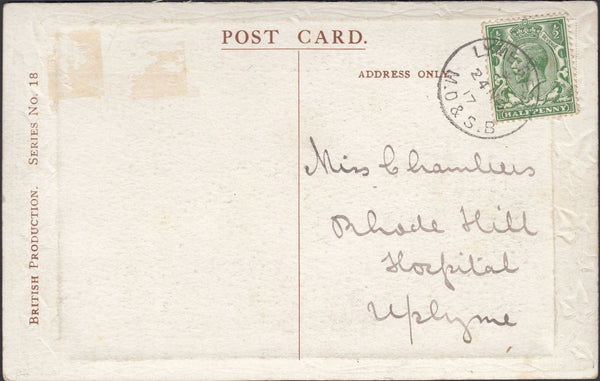 POST CARD.
ADDRESS ONLY
BRITISH PRODUCTION. SERIES No. 18
Miss Chambers
Rhode Hill
Hospital
Uplyme
24
17
M.O & S.B
½ ½
HALFPENNY